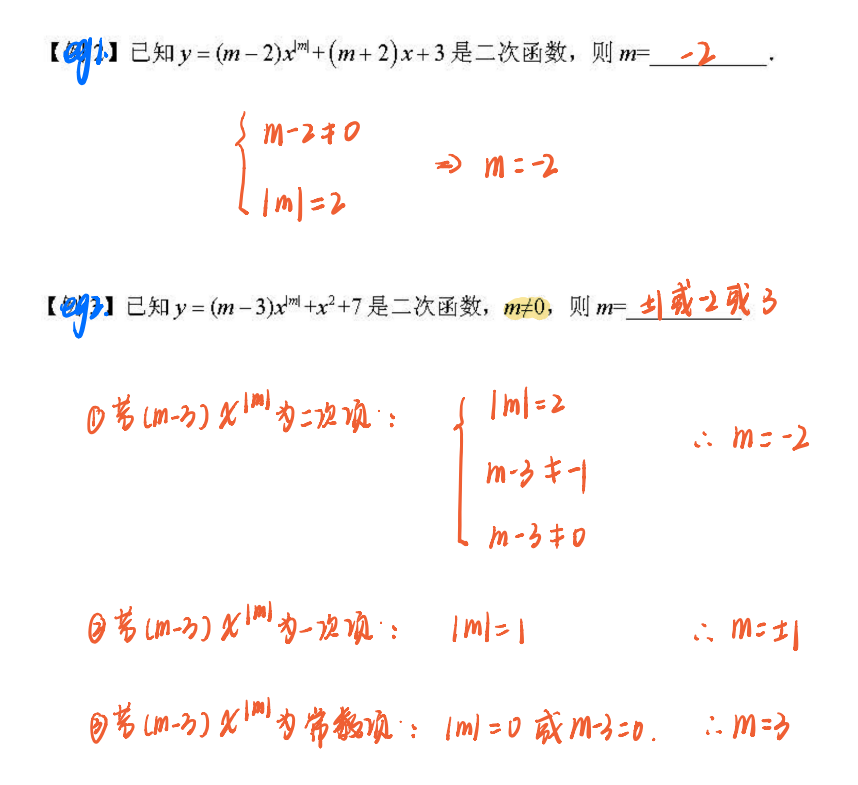 【eg2.】已知 y = (m − 2)x^|m| + (m + 2)x + 3 是二次函数，则 m= -2 .
{ m-2≠0
|m|=2
⇒ m=-2
【eg3.】已知 y = (m − 3)x^|m| + x² + 7 是二次函数，m≠0，则 m= ±1或-2或3
①若(m-3)x^|m|为二次项：
{ |m|=2
m-3≠-1
m-3≠0
∴ m=-2
②若(m-3)x^|m|为一次项： |m|=1 ∴ m=±1
③若(m-3)x^|m|为常数项： |m|=0 或 m-3=0. ∴ m=3